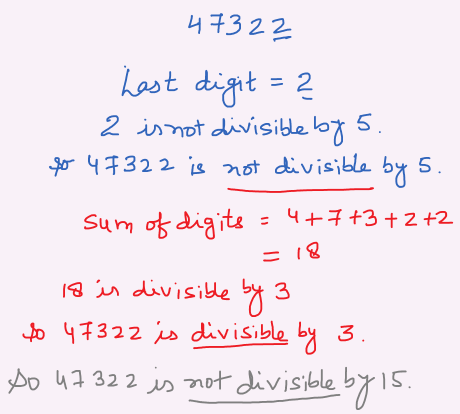 47322
Last digit = 2
2 is not divisible by 5.
So 47322 is not divisible by 5.
Sum of digits = 4+7+3+2+2
= 18
18 is divisible by 3
So 47322 is divisible by 3.
So 47322 is not divisible by 15.